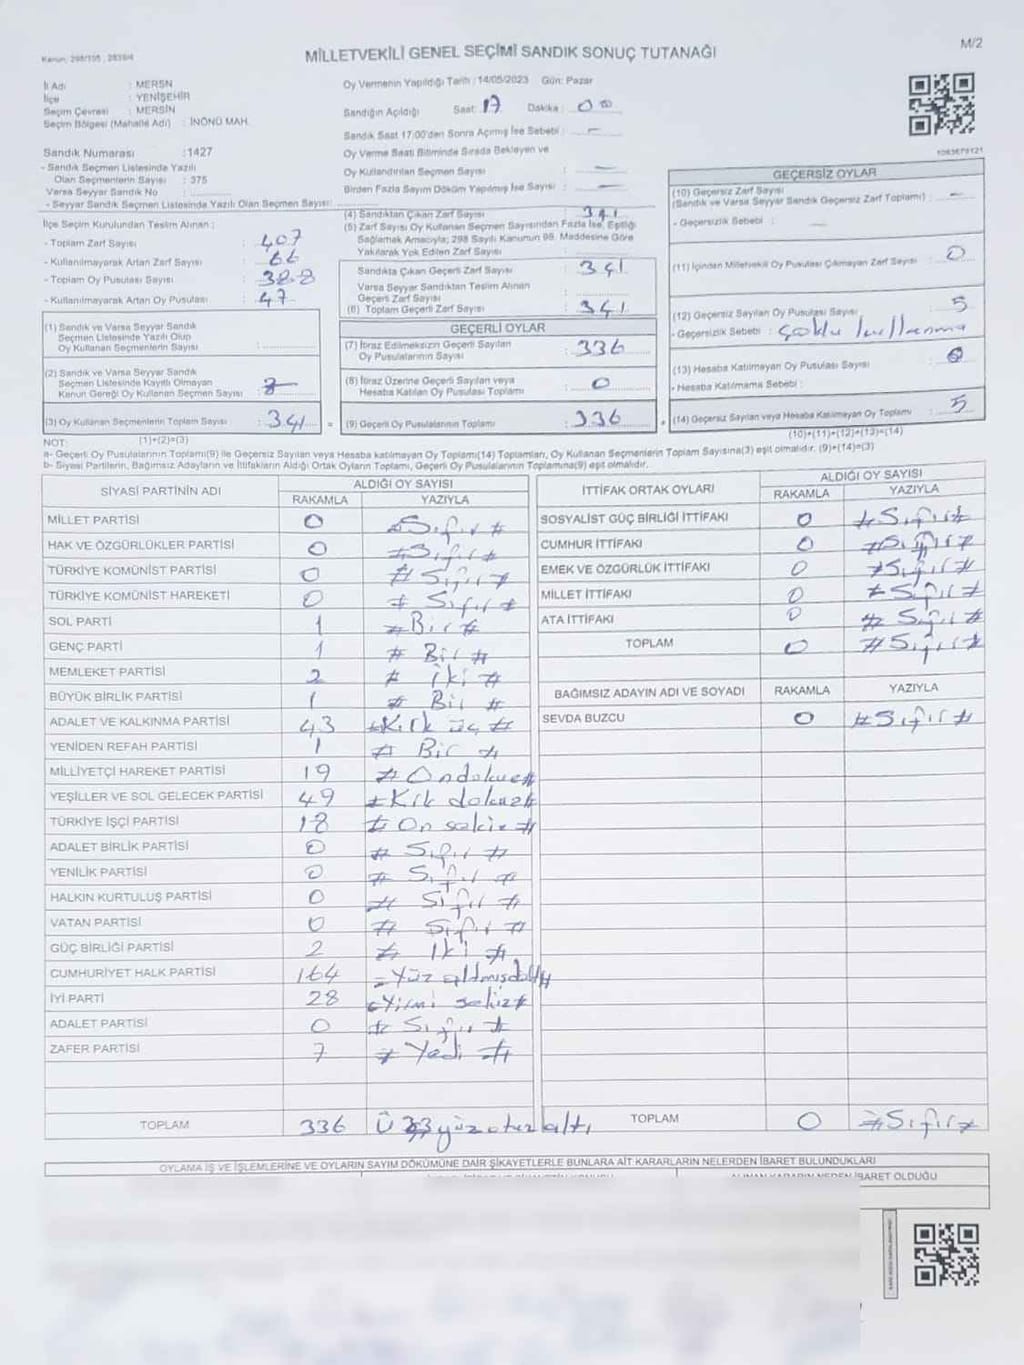 Kanun: 298/105, 2839/4
MİLLETVEKİLİ GENEL SEÇİMİ SANDIK SONUÇ TUTANAĞI
M/2
İl Adı : MERSN
İlçe : YENİŞEHİR
Seçim Çevresi : MERSİN
Seçim Bölgesi (Mahalle Adı) : İNÖNÜ MAH.
Sandık Numarası :1427
- Sandık Seçmen Listesinde Yazılı
Olan Seçmenlerin Sayısı : 375
Varsa Seyyar Sandık No
- Seyyar Sandık Seçmen Listesinde Yazılı Olan Seçmen Sayısı:
Oy Vermenin Yapıldığı Tarih : 14/05/2023 Gün: Pazar
Sandığın Açıldığı Saat: 17 Dakika : 00
Sandık Saat 17:00'den Sonra Açımış İse Sebebi : -
Oy Verme Saati Bitiminde Sırada Bekleyen ve
Oy Kullandırılan Seçmen Sayısı : -
Birden Fazla Sayım Döküm Yapılmış İse Sayısı : -
İlçe Seçim Kurulundan Teslim Alınan :
- Toplam Zarf Sayısı : 407
- Kullanılmayarak Artan Zarf Sayısı : 66
- Toplam Oy Pusulası Sayısı : 388
- Kullanılmayarak Artan Oy Pusulası : 47
(1) Sandık ve Varsa Seyyar Sandık
Seçmen Listesinde Yazılı Olup
Oy Kullanan Seçmenlerin Sayısı :
(2) Sandık ve Varsa Seyyar Sandık
Seçmen Listesinde Kayıtlı Olmayan
Kanun Gereği Oy Kullanan Seçmen Sayısı :
(3) Oy Kullanan Seçmenlerin Toplam Sayısı : 341 =
(1)+(2)=(3)
(4) Sandıktan Çıkan Zarf Sayısı : 341
(5) Zarf Sayısı Oy Kullanan Seçmen Sayısından Fazla İse, Eşitliği
Sağlamak Amacıyla; 298 Sayılı Kanunun 98. Maddesine Göre
Yakılarak Yok Edilen Zarf Sayısı :
Sandıkta Çıkan Geçerli Zarf Sayısı : 341
Varsa Seyyar Sandıktan Teslim Alınan
Geçerli Zarf Sayısı :
(6) Toplam Geçerli Zarf Sayısı : 341
GEÇERLİ OYLAR
(7) İtiraz Edilmeksizin Geçerli Sayılan
Oy Pusulalarının Sayısı : 336
(8) İtiraz Üzerine Geçerli Sayılan veya
Hesaba Katılan Oy Pusulası Toplamı : 0
(9) Geçerli Oy Pusulalarının Toplamı : 336 +
GEÇERSİZ OYLAR
(10) Geçersiz Zarf Sayısı
(Sandık ve Varsa Seyyar Sandık Geçersiz Zarf Toplamı) : -
- Geçersizlik Sebebi : -
(11) İçinden Milletvekili Oy Pusulası Çıkmayan Zarf Sayısı : 0
(12) Geçersiz Sayılan Oy Pusulası Sayısı : 5
- Geçersizlik Sebebi : Çoklu kullanma
(13) Hesaba Katılmayan Oy Pusulası Sayısı : 0
- Hesaba Katılmama Sebebi :
(14) Geçersiz Sayılan veya Hesaba Katılmayan Oy Toplamı : 5
(10)+(11)+(12)+(13)=(14)
NOT:
a- Geçerli Oy Pusulalarının Toplamı(9) ile Geçersiz Sayılan veya Hesaba katılmayan Oy Toplamı(14) Toplamları, Oy Kullanan Seçmenlerin Toplam Sayısına(3) eşit olmalıdır. (9)+(14)=(3)
b- Siyasi Partilerin, Bağımsız Adayların ve İttifakların Aldığı Ortak Oyların Toplamı, Geçerli Oy Pusulalarının Toplamına(9) eşit olmalıdır.
SİYASİ PARTİNİN ADI ALDIĞI OY SAYISI
RAKAMLA YAZIYLA
MİLLET PARTİSİ 0 #Sıfır#
HAK VE ÖZGÜRLÜKLER PARTİSİ 0 #Sıfır#
TÜRKİYE KOMÜNİST PARTİSİ 0 #Sıfır#
TÜRKİYE KOMÜNİST HAREKETİ 0 #Sıfır#
SOL PARTİ 1 #Bir#
GENÇ PARTİ 1 #Bir#
MEMLEKET PARTİSİ 2 #İki#
BÜYÜK BİRLİK PARTİSİ 1 #Bir#
ADALET VE KALKINMA PARTİSİ 43 #Kırk üç#
YENİDEN REFAH PARTİSİ 1 #Bir#
MİLLİYETÇİ HAREKET PARTİSİ 19 #Ondokuz#
YEŞİLLER VE SOL GELECEK PARTİSİ 49 #Kırk dokuz#
TÜRKİYE İŞÇİ PARTİSİ 18 #On sekiz#
ADALET BİRLİK PARTİSİ 0 #Sıfır#
YENİLİK PARTİSİ 0 #Sıfır#
HALKIN KURTULUŞ PARTİSİ 0 #Sıfır#
VATAN PARTİSİ 0 #Sıfır#
GÜÇ BİRLİĞİ PARTİSİ 2 #İki#
CUMHURİYET HALK PARTİSİ 164 =Yüz altmışdört#
İYİ PARTİ 28 #Yirmi sekiz#
ADALET PARTİSİ 0 #Sıfır#
ZAFER PARTİSİ 7 #Yedi#
TOPLAM 336 Üçyüzotuzaltı
İTTİFAK ORTAK OYLARI ALDIĞI OY SAYISI
RAKAMLA YAZIYLA
SOSYALİST GÜÇ BİRLİĞİ İTTİFAKI 0 #Sıfır#
CUMHUR İTTİFAKI 0 #Sıfır#
EMEK VE ÖZGÜRLÜK İTTİFAKI 0 #Sıfır#
MİLLET İTTİFAKI 0 #Sıfır#
ATA İTTİFAKI 0 #Sıfır#
TOPLAM 0 #Sıfır#
BAĞIMSIZ ADAYIN ADI VE SOYADI RAKAMLA YAZIYLA
SEVDA BUZCU 0 #Sıfır#
TOPLAM 0 #Sıfır#
OYLAMA İŞ VE İŞLEMLERİNE VE OYLARIN SAYIM DÖKÜMÜNE DAİR ŞİKAYETLERLE BUNLARA AİT KARARLARIN NELERDEN İBARET BULUNDUKLARI
ALINAN KARARIN NEDEN İBARET OLDUĞU